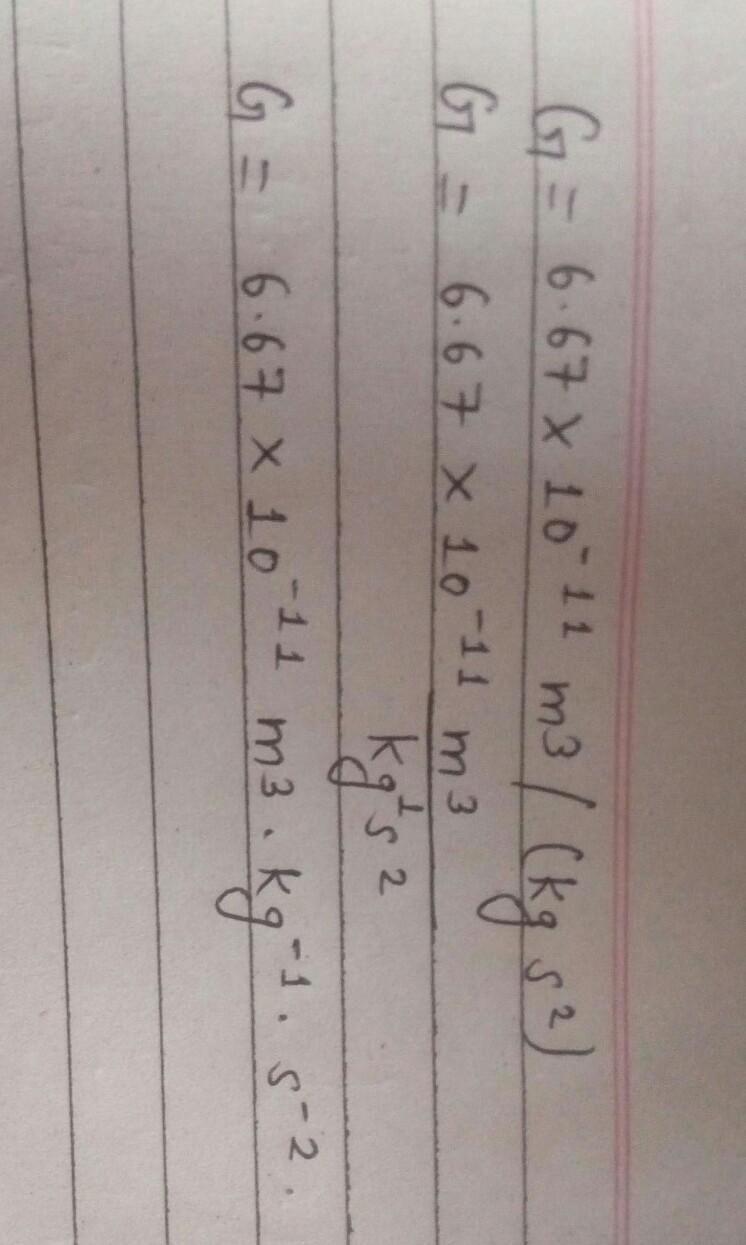 G = 6.67 × 10⁻¹¹ m³ / (kg s²)
G = 6.67 × 10⁻¹¹ m³
kg¹s²
G = 6.67 × 10⁻¹¹ m³ . kg⁻¹ . s⁻² .